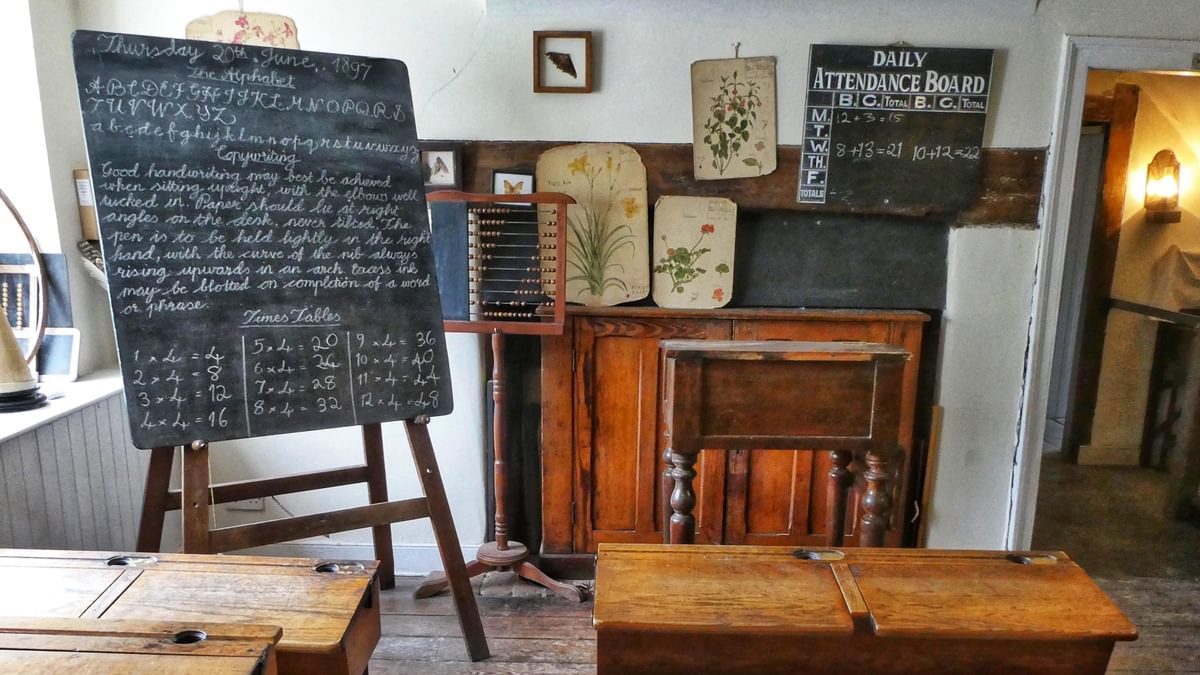 Thursday 20th June, 1897
The Alphabet
A B C D E F G H I J K L M N O P Q R S
T U V W X Y Z
a b c d e f g h i j k l m n o p q r s t u v w x y z
Copywriting
Good handwriting may best be achieved
when sitting upright, with the elbows well
tucked in. Paper should lie at right
angles on the desk, never tilted. The
pen is to be held lightly in the right
hand, with the curve of the nib always
rising upwards in an arch. Excess ink
may be blotted on completion of a word
or phrase.
Times Tables
1 × 4 = 4
2 × 4 = 8
3 × 4 = 12
4 × 4 = 16
5 × 4 = 20
6 × 4 = 24
7 × 4 = 28
8 × 4 = 32
9 × 4 = 36
10 × 4 = 40
11 × 4 = 44
12 × 4 = 48
DAILY
ATTENDANCE BOARD
B. G. TOTAL B. G. TOTAL
M. 12 + 3 = 15
T.
W. 8+13=21 10+12=22
TH.
F.
TOTALS